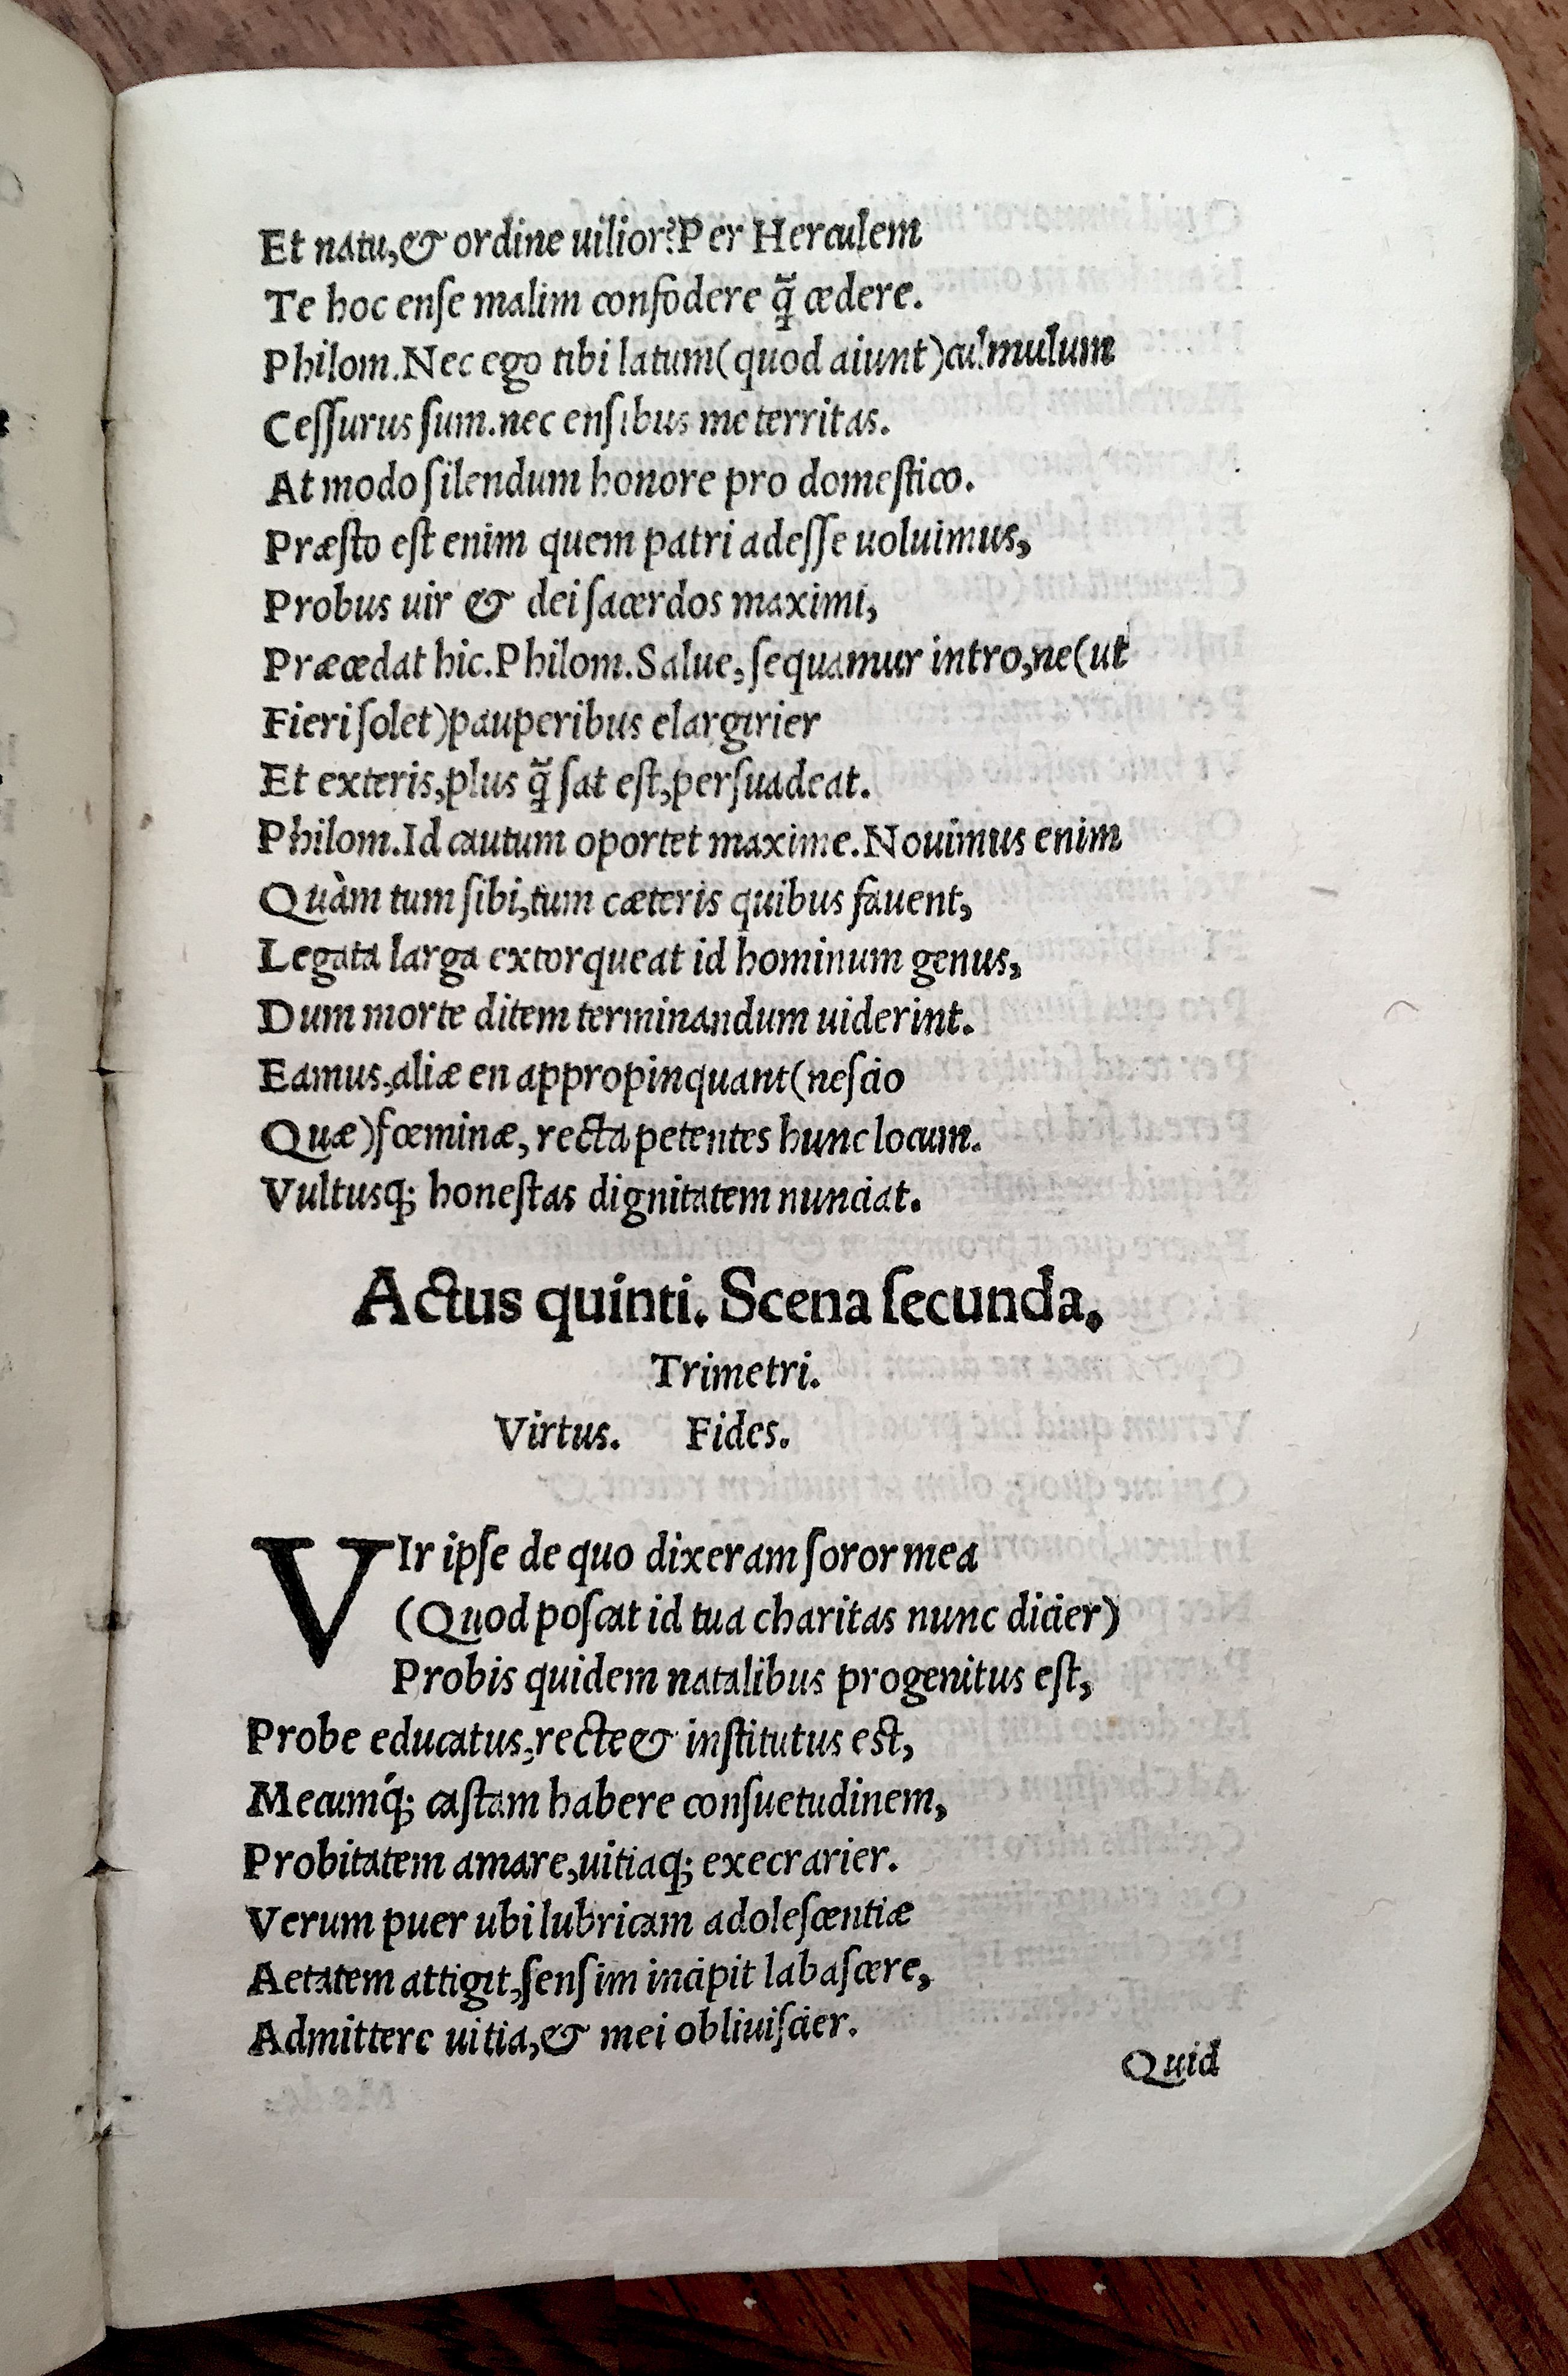 Et natu,& ordine uilior?Per Herculem
Te hoc enſe malim confodere q̃ cedere.
Philom.Nec ego tibi latum(quod aiunt)culmulum
Ceſſurus ſum.nec enſibus me territas.
At modo ſilendum honore pro domeſtico.
Præſto eſt enim quem patri adeſſe uoluimus,
Probus uir & dei ſacerdos maximi,
Præcedat hic.Philom.Salue,ſequamur intro,ne(ut
Fieri ſolet)pauperibus elargirier
Et exteris,plus q̃ ſat eſt,perſuadeat.
Philom.Id cautum oportet maxime.Nouimus enim
Quàm tum ſibi,tum cæteris quibus fauent,
Legata larga extorqueat id hominum genus,
Dum morte ditem terminandum uiderint.
Eamus,aliæ en appropinquant(neſcio
Quæ)fœminæ, recta petentes hunc locum.
Vultusq; honeſtas dignitatem nunciat.
Actus quinti. Scena ſecunda.
Trimetri.
Virtus. Fides.
VIr ipſe de quo dixeram ſoror mea
(Quod poſcat id tua charitas nunc dicier)
Probis quidem natalibus progenitus eſt,
Probe educatus,recte & inſtitutus eſt,
Mecumq́; caſtam habere conſuetudinem,
Probitatem amare,uitiaq; execrarier.
Verum puer ubi lubricam adoleſcentiæ
Aetatem attigit,ſenſim incipit labaſcere,
Admittere uitia,& mei obliuiſcier.
Quid